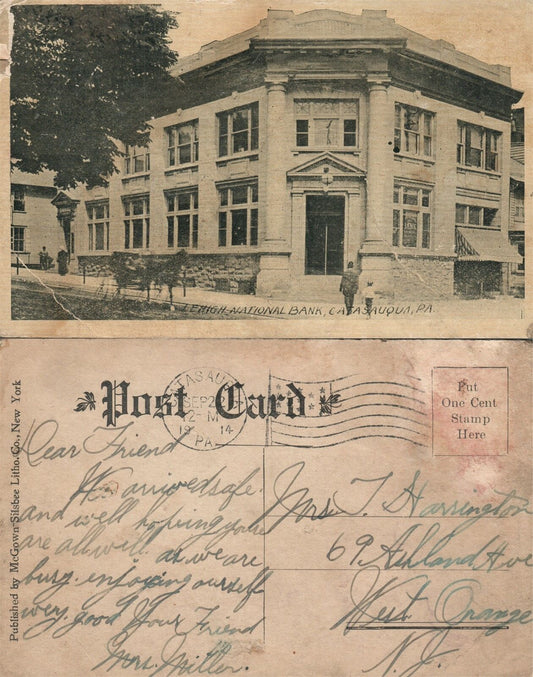 LEHIGH NATIONAL BANK, CATASAUQUA, PA.
Published by McGown-Silsbee Litho. Co., New York
Post Card
CATASAUQUA
SEP 2
12-M
1914
PA.
Put
One Cent
Stamp
Here
Dear Friend
We arrived safe
and well hoping you
are all well as we are
busy enjoying ourself
very good Your Friend
Mrs. Miller.
Mrs T. Harrington
69 Ashland Ave
West Orange
N. J.